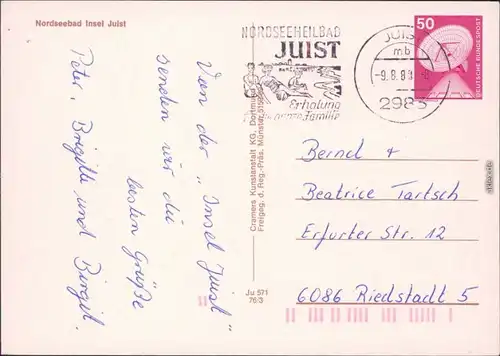 Nordseebad Insel Juist
Von der "Insel Juist"
senden wir die
besten Grüße
Peter, Birgitte und Birgit.
Cramers Kunstanstalt KG, Dortmund
Freigag. d. Reg.-Präs. Münster
Ju 571
76/3
NORDSEEHEILBAD
JUIST
Erholung
Familie
JUIST
mb
-9.8.8
2983
50
DEUTSCHE BUNDESPOST
Bernd +
Beatrice Tartsch
Erfurter Str. 12
6086 Riedstadt 5